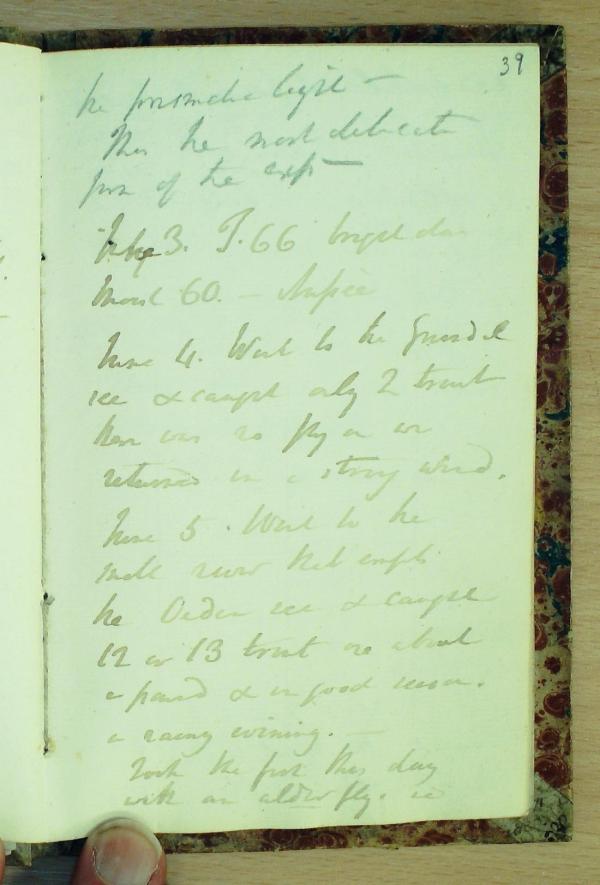 39
the prismatic light —
This the most delicate
part of the expt —
3. T. 66 bright day
60. —
June 4. Went to the Grundel
see & caught only 2 trout
there was no fly on we
returned in a strong wind.
June 5. Went to the
small river that
the see & caught
12 or 13 trout one about
a pound & in good season.
a rainy evening. —
Took the first this day
with an alder fly.